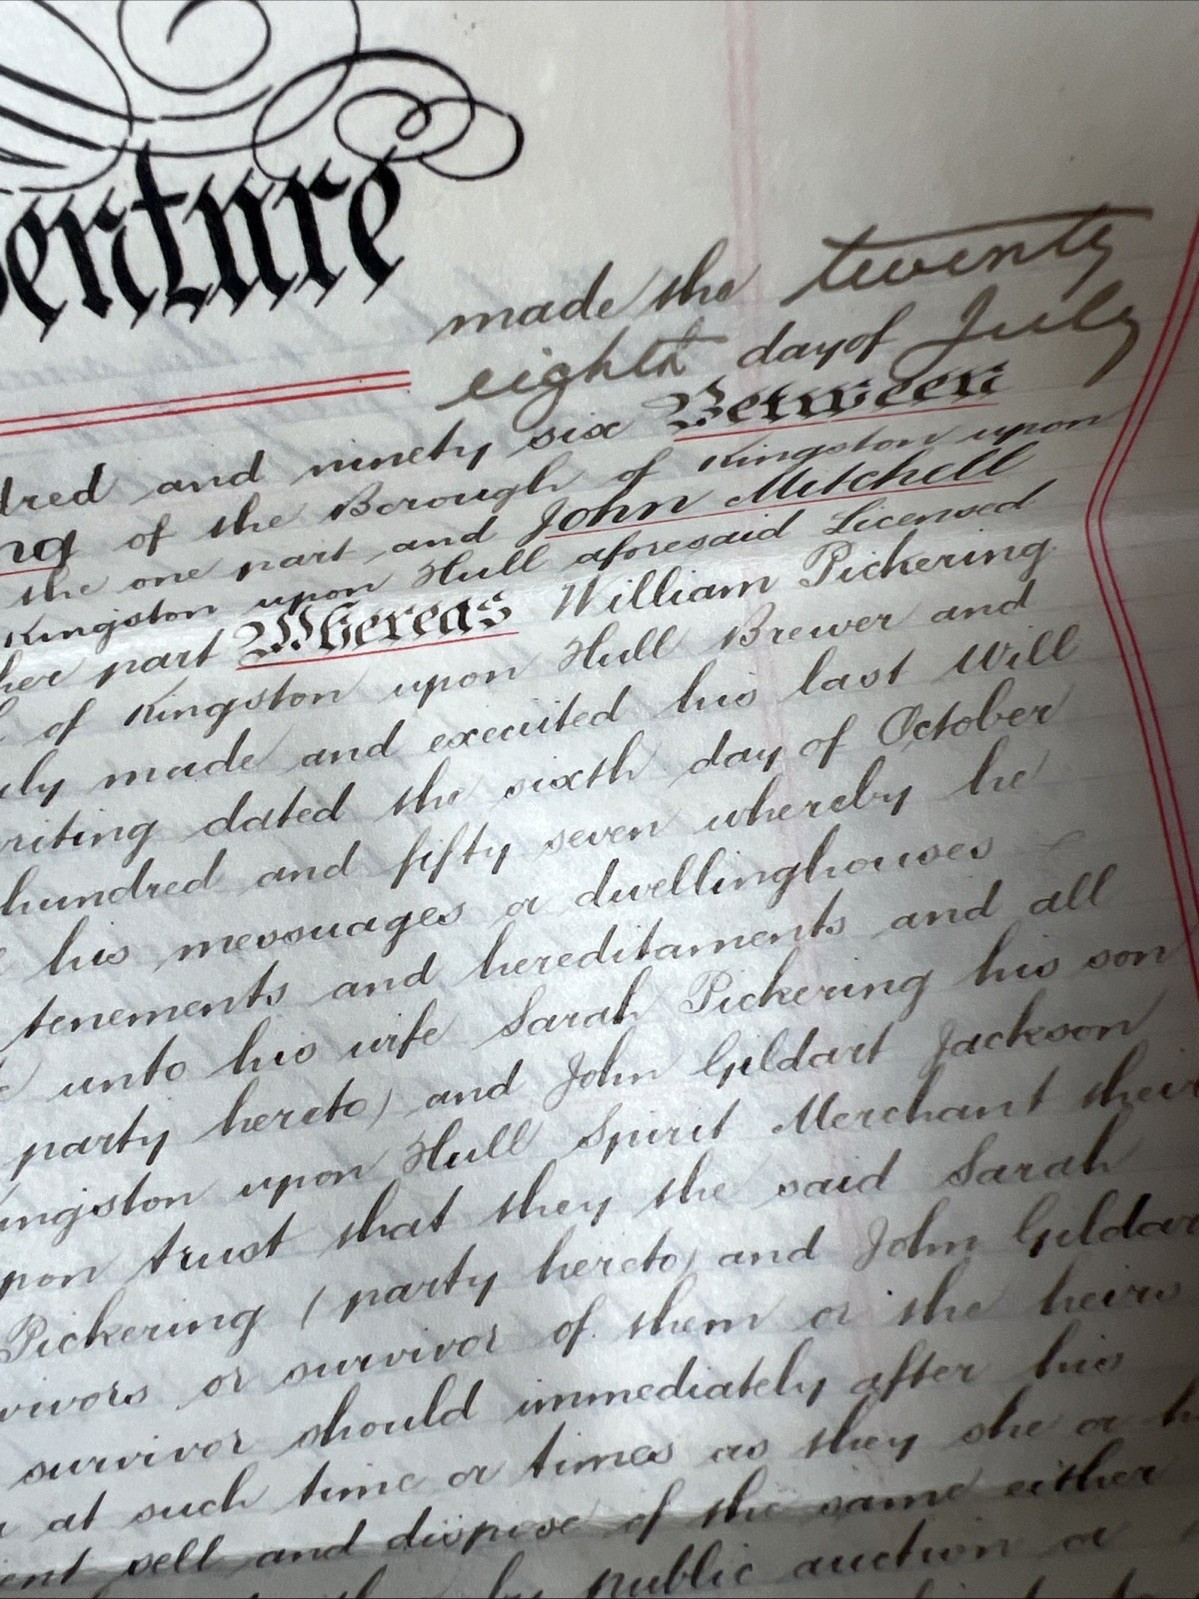 enture made the twenty
eighth day of July
dred and ninety six Between
ng of the Borough of Kingston upon
the one part and John Mitchell
Kingston upon Hull aforesaid Licensed
her part Whereas William Pickering
of Kingston upon Hull Brewer and
uly made and executed his last Will
writing dated the sixth day of October
hundred and fifty seven whereby he
his messuages or dwellinghouses
tenements and hereditaments and all
unto his wife Sarah Pickering his son
party hereto) and John Gildart Jackson
ingston upon Hull Spirit Merchant their
pon trust that they the said Sarah
Pickering (party hereto) and John Gildar
vivors or survivor of them or the heirs
survivor should immediately after his
at such time or times as they she or h
ent sell and dispose of the same either
by public auction or